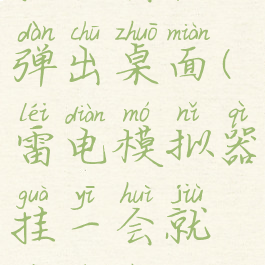 dàn chū zhuō miàn
弹出桌面(
léi diàn mó nǐ qì
雷电模拟器
guà yī huì jiù
挂一会就